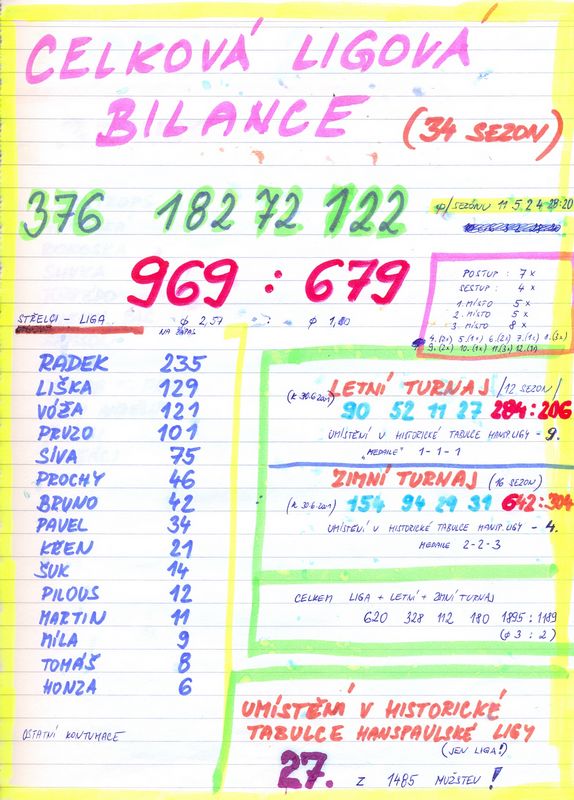 CELKOVÁ LIGOVÁ
BILANCE (34 SEZON)
376 182 72 122
φ/SEZÓNU 11 5 2 4 28:20
969 : 679
STŘELCI - LIGA
φ 2,57 NA ZÁPAS φ 1,80
POSTUP : 7x
SESTUP : 4x
1. MÍSTO 5x
2. MÍSTO 5x
3. MÍSTO 8x
4.(2x) 5.(1x) 6.(2x) 7.(1x) 8.(3x)
9.(2x) 10.(1x) 11.(3x) 12.(1x)
RADEK 235
LIŠKA 129
VÓŽA 121
PRUZO 101
SÍVA 75
PROCHY 46
BRUNO 42
PAVEL 34
KŘEN 21
ŠUK 14
PILOUS 12
MARTIN 11
MÍLA 9
TOMÁŠ 8
HONZA 6
OSTATNÍ KONTUMACE
(K 30.6.2001) LETNÍ TURNAJ /12 SEZON/
90 52 11 27 284:206
UMÍSTĚNÍ V HISTORICKÉ TABULCE HANSP.LIGY - 9.
„MEDAILE" 1-1-1
ZIMNÍ TURNAJ (16 SEZON)
(K 30.6.2001) 154 94 29 31 642:304
UMÍSTĚNÍ V HISTORICKÉ TABULCE HANSP.LIGY - 4.
MEDAILE 2-2-3
CELKEM LIGA + LETNÍ + ZIMNÍ TURNAJ
620 328 112 180 1895:1189
(φ 3 : 2)
UMÍSTĚNÍ V HISTORICKÉ
TABULCE HANSPAULSKÉ LIGY
(JEN LIGA!)
27. Z 1485 MUŽSTEV!